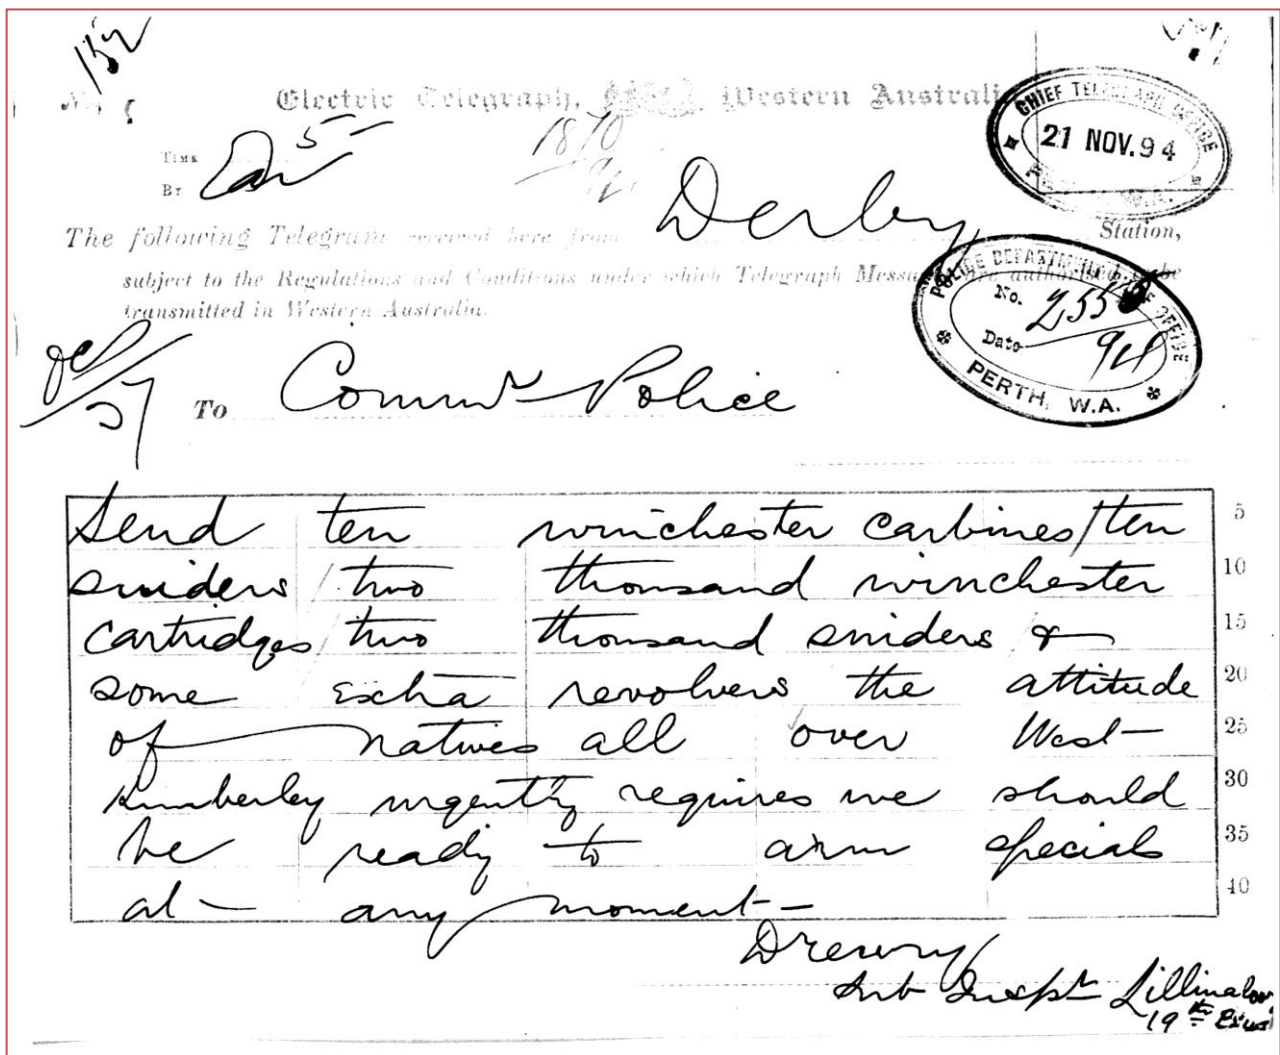 152
No.
Electric Telegraph, Western Australi
CHIEF TELEGRAPH OFFICE
21 NOV. 94
TIME 5
BY
1870
94
The following Telegram received here from Derby Station,
subject to the Regulations and Conditions under which Telegraph Messages are authorised to be
transmitted in Western Australia.
POLICE DEPARTMENT OFFICE
No. 255
Date 94
PERTH, W.A.
To Commr Police
Send ten winchester carbines / ten 5
sniders / two thousand winchester 10
cartridges / two thousand sniders & 15
some extra revolvers the attitude 20
of natives all over West 25
Kimberley urgently requires we should 30
be ready to arm specials 35
at any moment 40
Drewry
Sub Inspr Lillinaloo
19th